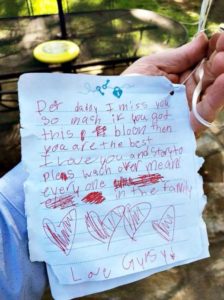 Der daddy I miss you
so mash if you got
this bloon then
you are the best
I love you and story to
pleas wach over means
every one
in the family
Love Gypsy